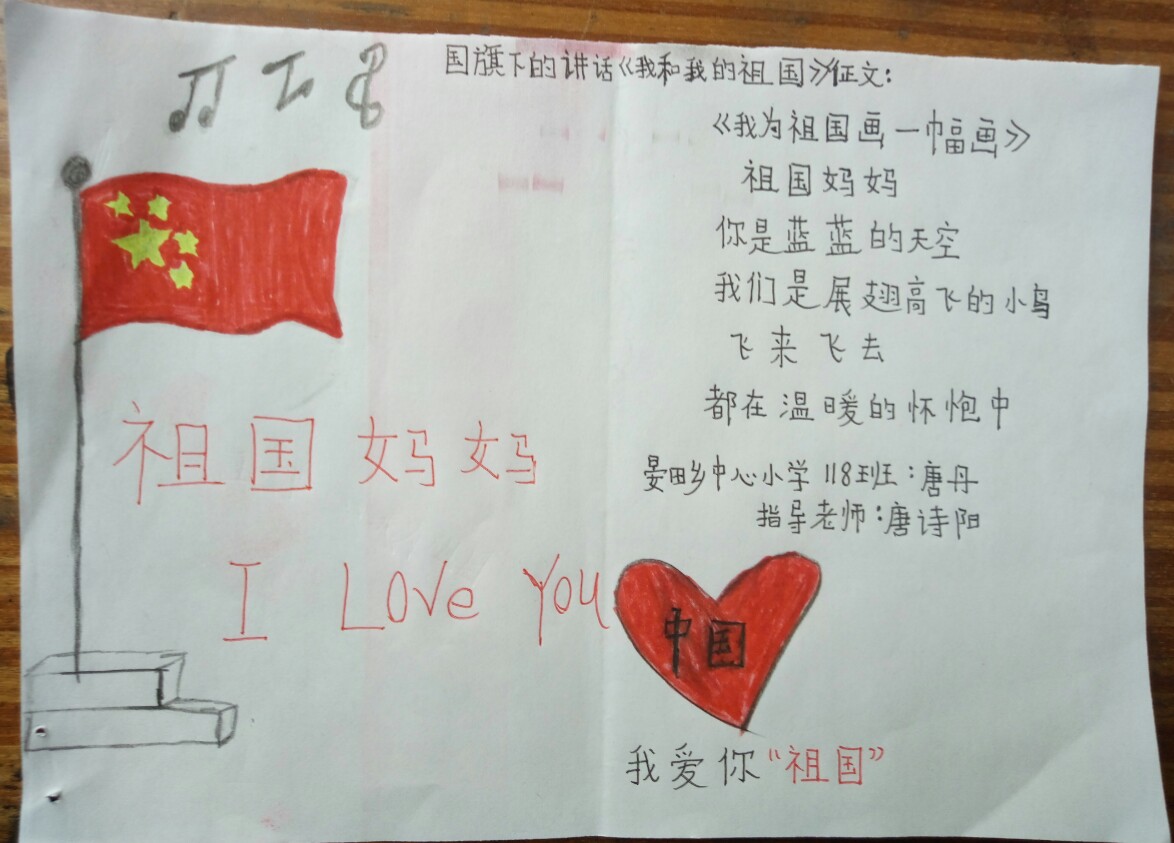 国旗下的讲话《我和我的祖国》征文:
《我为祖国画一幅画》
祖国妈妈
你是蓝蓝的天空
我们是展翅高飞的小鸟
飞来飞去
都在温暖的怀抱中
晏田乡中心小学118班:唐丹
指导老师:唐诗阳
祖国妈妈
I Love You
中国
我爱你“祖国”